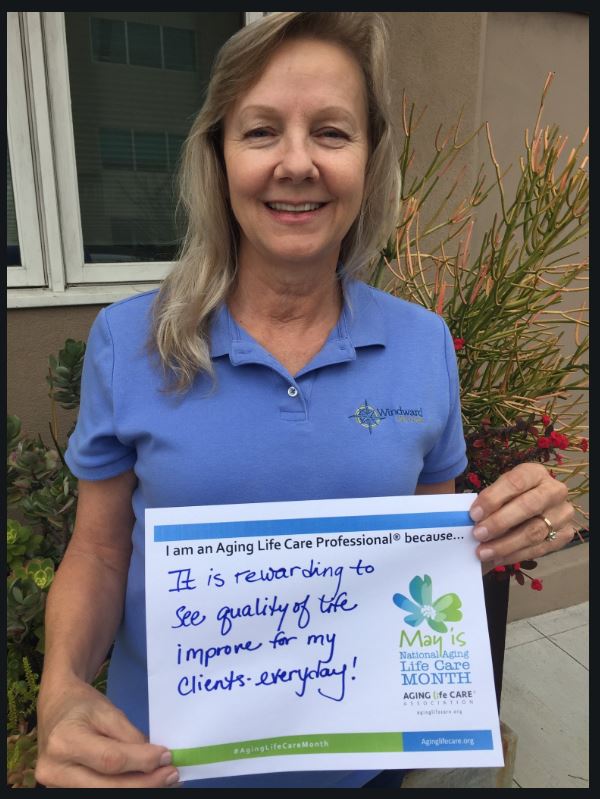 Windward
I am an Aging Life Care Professional® because...
It is rewarding to
see quality of life
improve for my
clients-everyday!
May is
National Aging
Life Care
MONTH
AGING life CARE®
ASSOCIATION
aginglifecare.org
#AgingLifeCareMonth
Aginglifecare.org